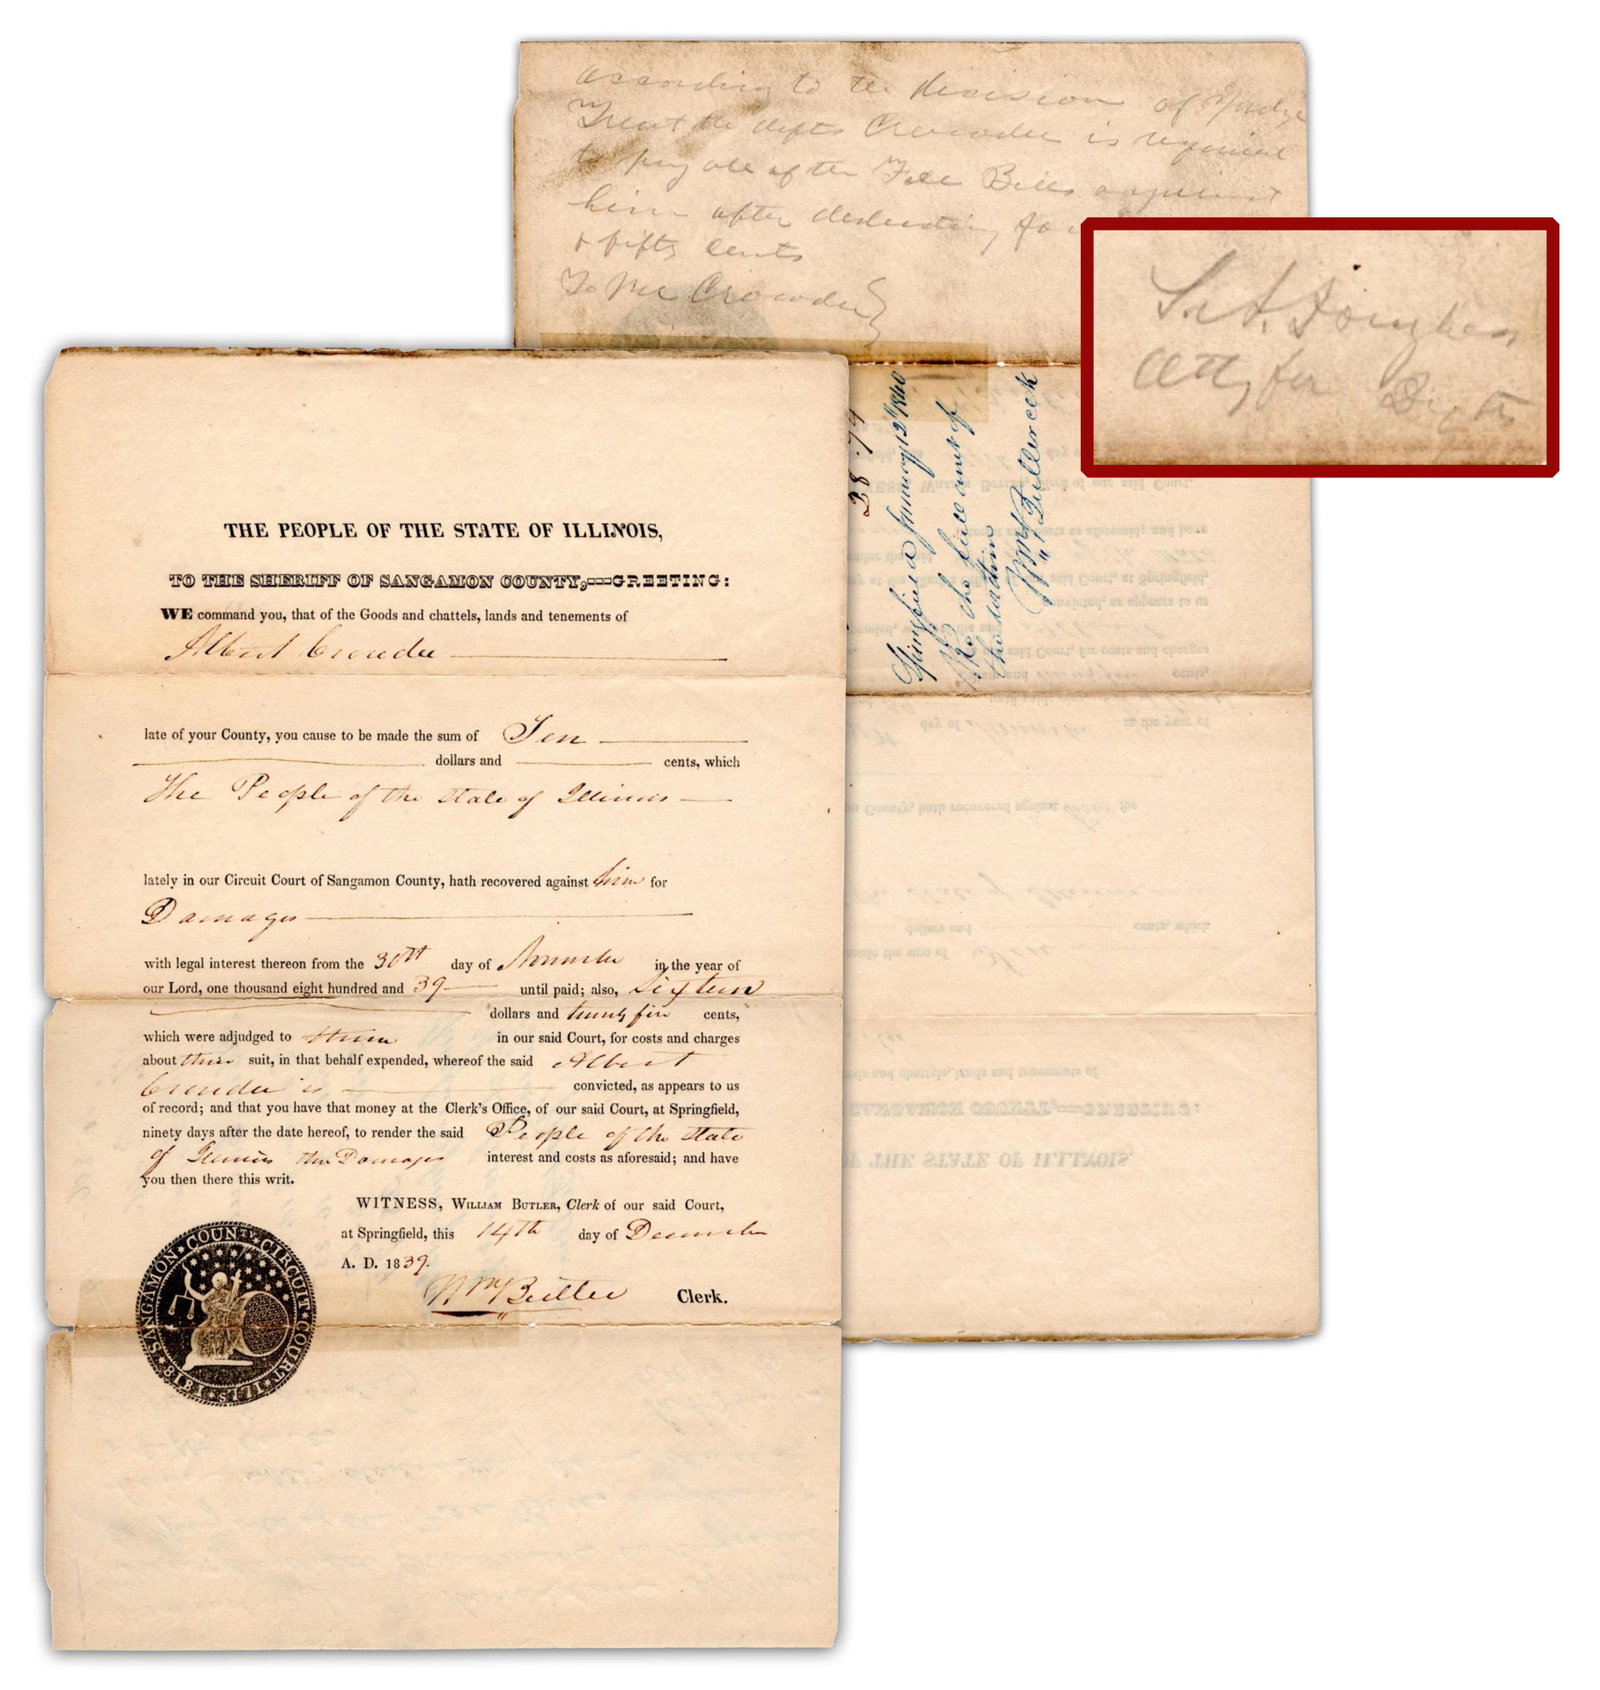 THE PEOPLE OF THE STATE OF ILLINOIS,
TO THE SHERIFF OF SANGAMON COUNTY,—GREETING:
WE command you, that of the Goods and chattels, lands and tenements of
Albert Crowder
late of your County, you cause to be made the sum of Ten
dollars and cents, which
The People of the State of Illinois
lately in our Circuit Court of Sangamon County, hath recovered against him for
Damages
with legal interest thereon from the 30th day of November in the year of
our Lord, one thousand eight hundred and 39 until paid; also, Sixteen
dollars and twenty five cents,
which were adjudged to them in our said Court, for costs and charges
about their suit, in that behalf expended, whereof the said Albert
Crowder is convicted, as appears to us
of record; and that you have that money at the Clerk's Office, of our said Court, at Springfield,
ninety days after the date hereof, to render the said People of the State
of Illinois their Damages interest and costs as aforesaid; and have
you then there this writ.
WITNESS, WILLIAM BUTLER, Clerk of our said Court,
at Springfield, this 14th day of December
A. D. 1839.
Wm Butler Clerk.
SANGAMON COUNTY CIRCUIT COURT ILLS 1818
according to the decision of Judge
Treat the defts Crowder is required
to pay all of the Fee Bills against
him after deducting
& fifty cents
To Mr Crowder
S. A. Douglass
Atty for
28.74
Springfield January 12th 1840
the full amt of
the within